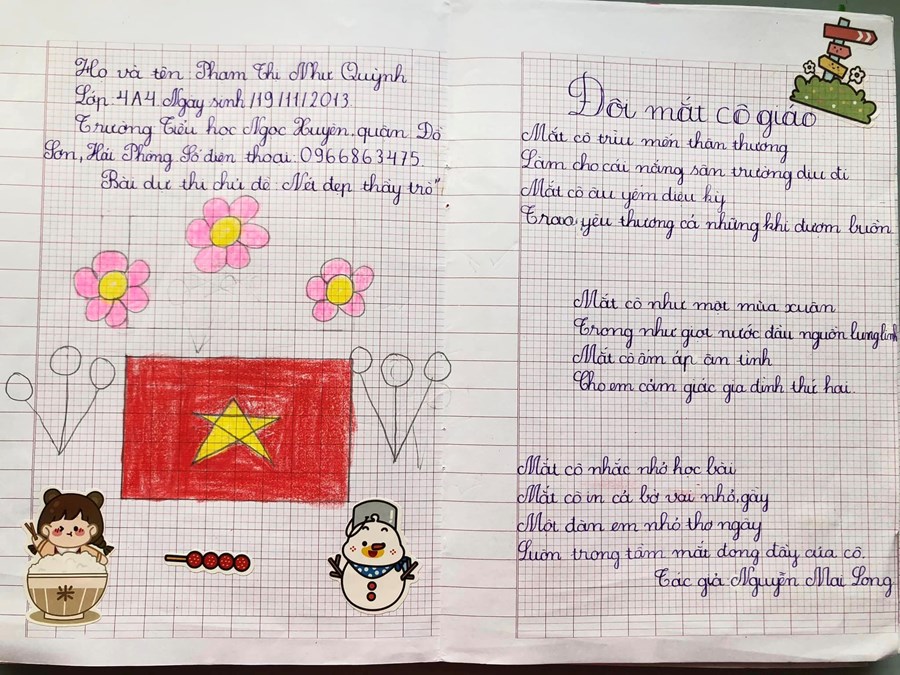 Họ và tên Phạm Thị Như Quỳnh
Lớp 4A4. Ngày sinh 19/11/2013
Trường Tiểu học Ngọc Xuyên. quận Đồ
Sơn, Hải Phòng. Số điện thoại: 0966863475.
Bài dự thi chủ đề: Nét đẹp thầy trò"
米
Đôi mắt cô giáo
Mắt cô trìu mến thân thương
Làm cho cái nắng sân trường dịu đi
Mắt cô âu yếm diệu kỳ
Trao yêu thương cả những khi đượm buồn.
Mắt cô như một mùa xuân
Trong như giọt nước đầu nguồn lung linh
Mắt cô ấm áp ân tình
Cho em cảm giác gia đình thứ hai.
Mắt cô nhắc nhở học bài
Mắt cô in cả bờ vai nhỏ, gầy
Một đàn em nhỏ thơ ngây
Luôn trong tầm mắt đong đầy của cô.
Tác giả Nguyễn Mai Long